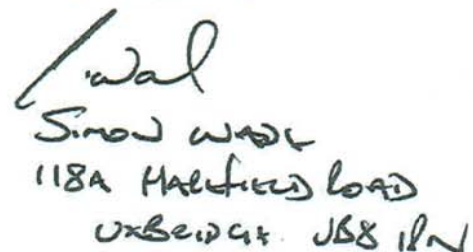 SIMON WADE
118A HAREFIELD ROAD
UXBRIDGE. UB8 1PN